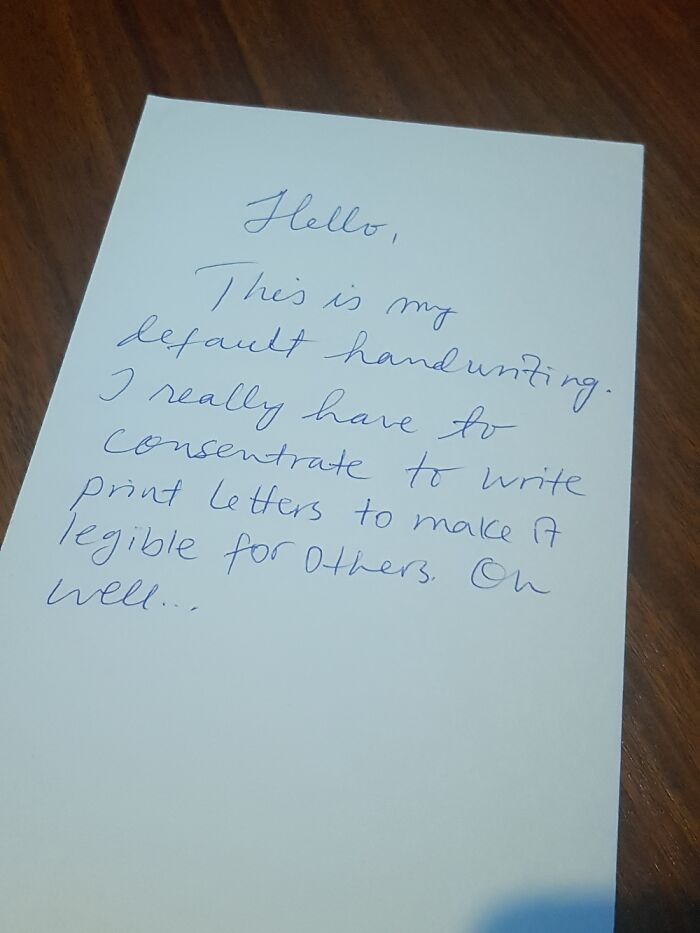 Hello,
This is my
default handwriting.
I really have to
consentrate to write
print letters to make it
legible for others. Oh
well...